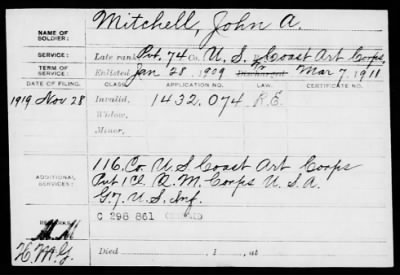 NAME OF SOLDIER: Mitchell, John A.
SERVICE: Late rank Pvt. 74 Co. U. S. Coast Art Corps,
TERM OF SERVICE: Enlisted Jan 28, 1909 Discharged Mar 7, 1911
DATE OF FILING. CLASS. APPLICATION NO. LAW.
1919 Nov 28 Invalid, 1432.074 R.E.
Widow,
Minor,
ADDITIONAL SERVICES: 116. Co. U S Coast Art Corps
Pvt 1 Cl Q. M. Corps U. S. A.
G. 7 U. S. Inf.
C 296 861
REMARKS:
Died , 1 , at